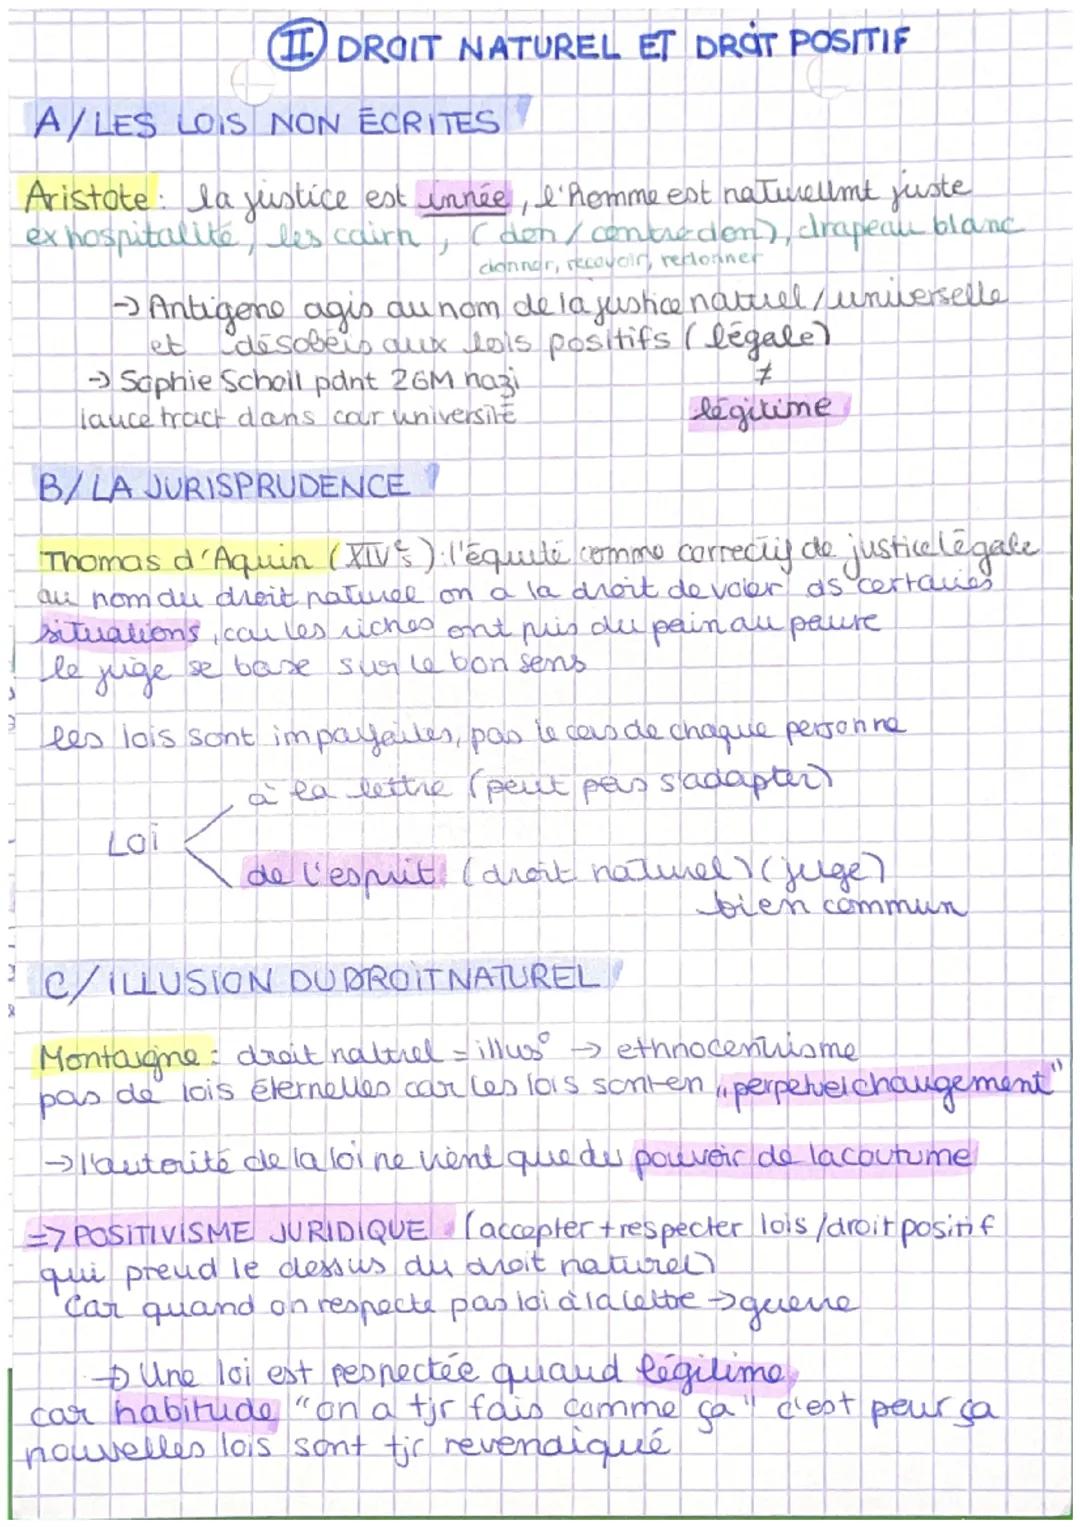 II DROIT NATUREL ET DROIT POSITIF
A/ LES LOIS NON ÉCRITES
Aristote : la justice est innée, l'Homme est naturellmt juste
ex hospitalité, les cairn, (don/contre don), drapeau blanc
donner, recevoir, redonner
→ Antigone agis au nom de la justice naturel/universelle
et désobéis aux lois positifs (légale)
≠
→ Sophie Scholl pdnt 2GM nazi
lance tract dans cour université
légitime
B/ LA JURISPRUDENCE
Thomas d'Aquin (XIVe s) : l'équité comme correctif de justice légale
au nom du droit naturel on a la droit de voler ds certaines
situations, car les riches ont pris du pain au pauvre
le juge se base sur le bon sens
les lois sont imparfaites, pas le cas de chaque personne
à la lettre (peut pas s'adapter)
Loi
de l'esprit (droit naturel) (juge)
bien commun
C/ ILLUSION DU DROIT NATUREL
Montaigne : droit naturel = illus° → ethnocentrisme
pas de lois éternelles car les lois sont en "perpetuel changement"
→ l'autorité de la loi ne vient que du pouvoir de la coutume
=> POSITIVISME JURIDIQUE (accepter + respecter lois/droit positif
qui prend le dessus du droit naturel)
Car quand on respecte pas loi à la lettre → guerre
→ Une loi est respectée quand légitime
car habitude "on a tjr fais comme ça" c'est pour ça
nouvelles lois sont tjr revendiqué